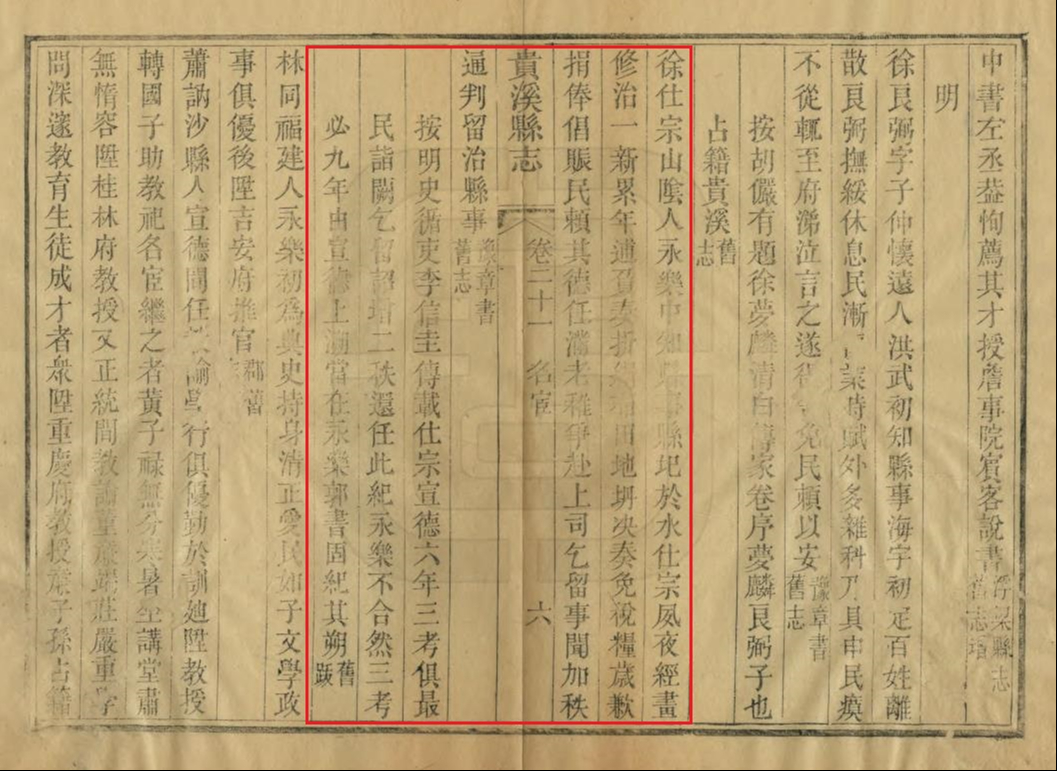 中書左丞葢恂薦其才授詹事院賓客說書浮梁縣志舊志
明
徐良弼字子仲懷遠人洪武初知縣事海宇初定百姓離
散良弼撫綏休息民漸業時賦外多雜科乃具申民瘼
不從輒至府涕泣言之遂得免民賴以安豫章書舊志
按胡儼有題徐夢麟清白傳家卷序夢麟良弼子也
占籍貴溪舊志
徐仕宗山陰人永樂中知縣事縣圯於水仕宗夙夜經畫
修治一新累年逋負奏折絹田地坍决奏免稅糧歲歉
捐俸倡賑民賴其德任滿老稚爭赴上司乞留事聞加秩
貴溪縣志 卷二十一 名宦 六
通判留治縣事豫章書舊志
按明史循吏李信圭傳載仕宗宣德六年三考俱最
民詣闕乞留詔增二秩還任此紀永樂不合然三考
必九年由宣德上溯當在永樂郭書固紀其朔舊跋
林同福建人永樂初為典史持身清正愛民如子文學政
事俱優後陞吉安府推官郡舊
蕭訥沙縣人宣德間任諭學行俱優勤於訓廸陞教授
轉國子助教祀名宦繼之者黃子祿無分寒暑坐講堂肅
無惰容陞桂林府教授又正統間教諭董端莊嚴重學
問深邃教育生徒成才者衆陞重慶府教授子孫占籍